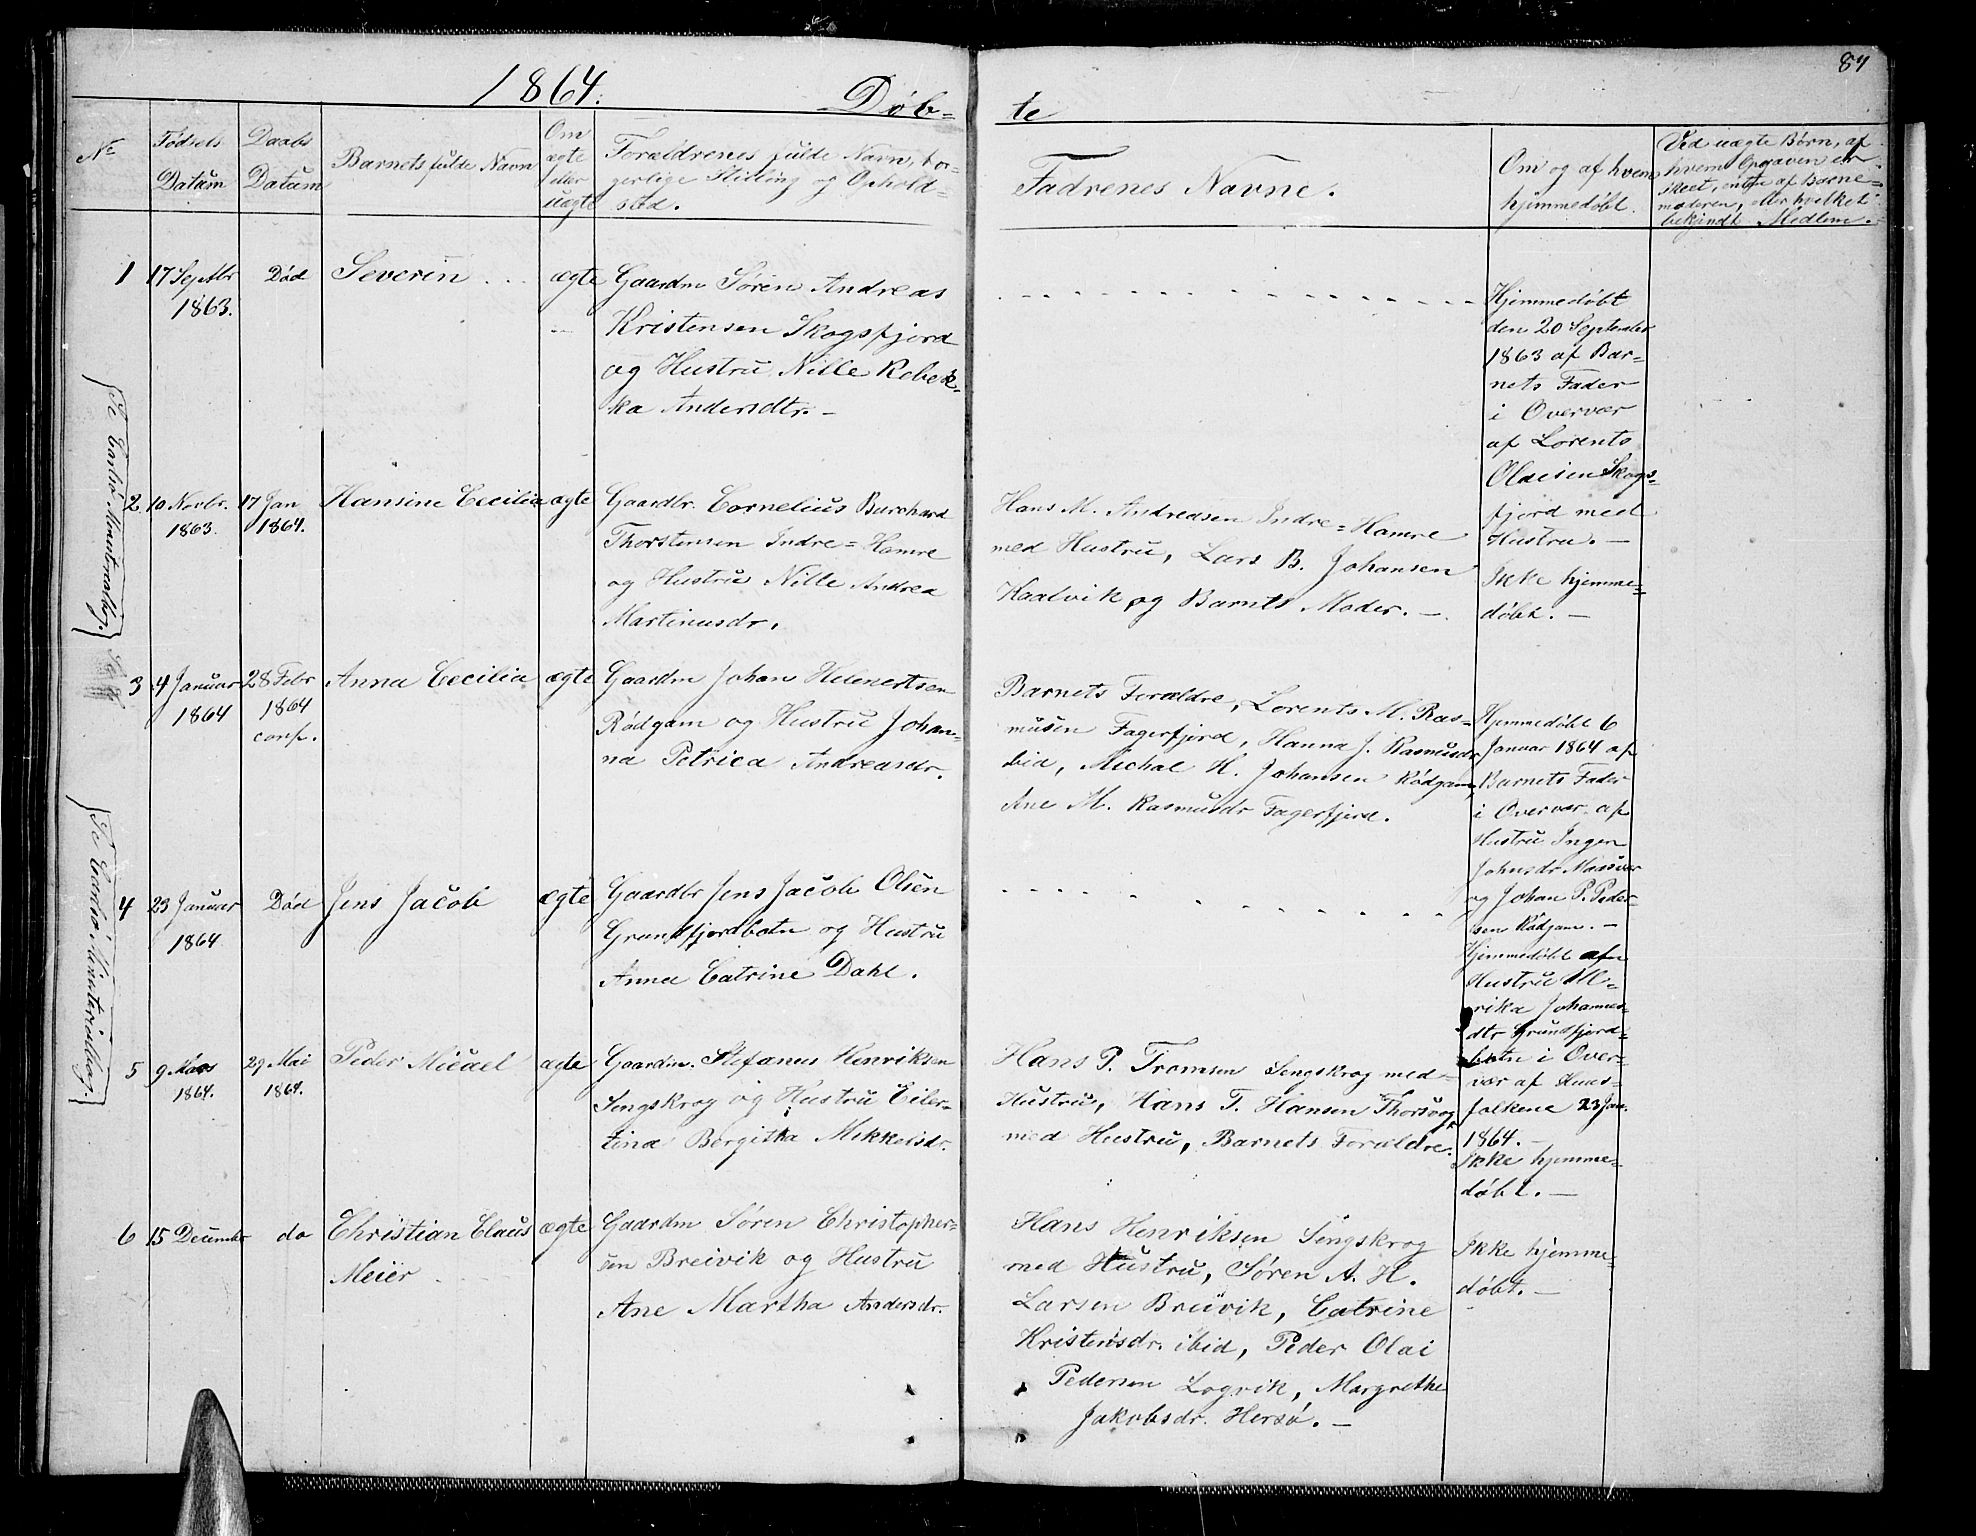 84
1864.
Døb-
te
No
Fødsels
Datum
Daabs
Datum
Barnets fulde Navn
Om
ægte
eller
uægte
Forældrenes fulde Navn, bor-
gerlige Stilling og Ophold-
sted.
Fadrenes Navne.
Om og af hvem
hjemmedøbt.
Ved uægte Børn, af
hvem Opgaven er
skeet, enten af Barne-
moderen, eller hvilket
bekjendt Medlem.
1
17 Septbr
1863.
Død
Severin
ægte
Gaardm Søren Andreas
Kristensen Skogsfjord
og Hustru Nille Rebek-
ka Andersdtr. -
Hjemmedøbt
den 20 September
1863 af Bar-
nets Fader
i Overvær
af Lorents
Olaisen Skogs-
fjord med
Hustru. -
2
10 Novbr.
1863.
17 Jan
1864.
Hansine Cecilia
ægte
Gaardbr. Cornelius Burchard
Thorstensen Indre-Hamre
og Hustru Nille Andrea
Martinusdr.
Hans M. Andreasen Indre-Hamre
med Hustru, Lars B. Johansen
Haalvik og Barnets Moder. -
Ikke hjemme-
døbt. -
3
4 Januar
1864
28 Febr
1864
conf.
Anna Cecilia
ægte
Gaardm Johan Helenertsen
Rødgam og Hustru Johan-
na Petrica Andreasdr.
Barnets Forældre, Lorents M. Ras-
musen Fagerfjord, Hanna J. Rasmusdr
ibid, Michal H. Johansen Rødgam,
Ane M. Rasmusdr Fagerfjord.
Hjemmedøbt 6
Januar 1864 af
Barnets Fader
i Overvær af
Hustru Inger
Johnsdr
og Johan P. Peder-
sen Rødgam. -
4
23 Januar
1864
Død
Jens Jacob
ægte
Gaardbr Jens Jacob Olsen
Grundfjordbotn og Hustru
Anna Catrine Dahl.
Hjemmedøbt af
Hustru Ul-
rika Johannes-
dtr Grundfjord-
botn i Over-
vær af Huus-
folkene 23 Jan.
1864. -
5
9 Mars
1864.
29 Mai
1864.
Peder Micael
ægte
Gaardm. Stefanus Henriksen
Sengskrog og Hustru Eiler-
tina Borgitha Mikkelsdr.
Hans P. Tromsen Sengskrog med
Hustru, Hans T. Hansen Thorsvog
med Hustru, Barnets Forældre.
Ikke hjemme-
døbt. -
6
15 December
do
Christian Claus
Meier
ægte
Gaardm Søren Christopher-
sen Breivik og Hustru
Ane Martha Andersdr.
Hans Henriksen Sengskrog
med Hustru, Søren A. H.
Larsen Breivik, Catrine
Kristensdr. ibid, Peder Olai
Pedersen Logvik, Margrethe
Jakobsdr. Hersø. -
Ikke hjemme-
døbt. -
Se Carlsø Ministerialbog.
Se Carlsø Ministerialbog.